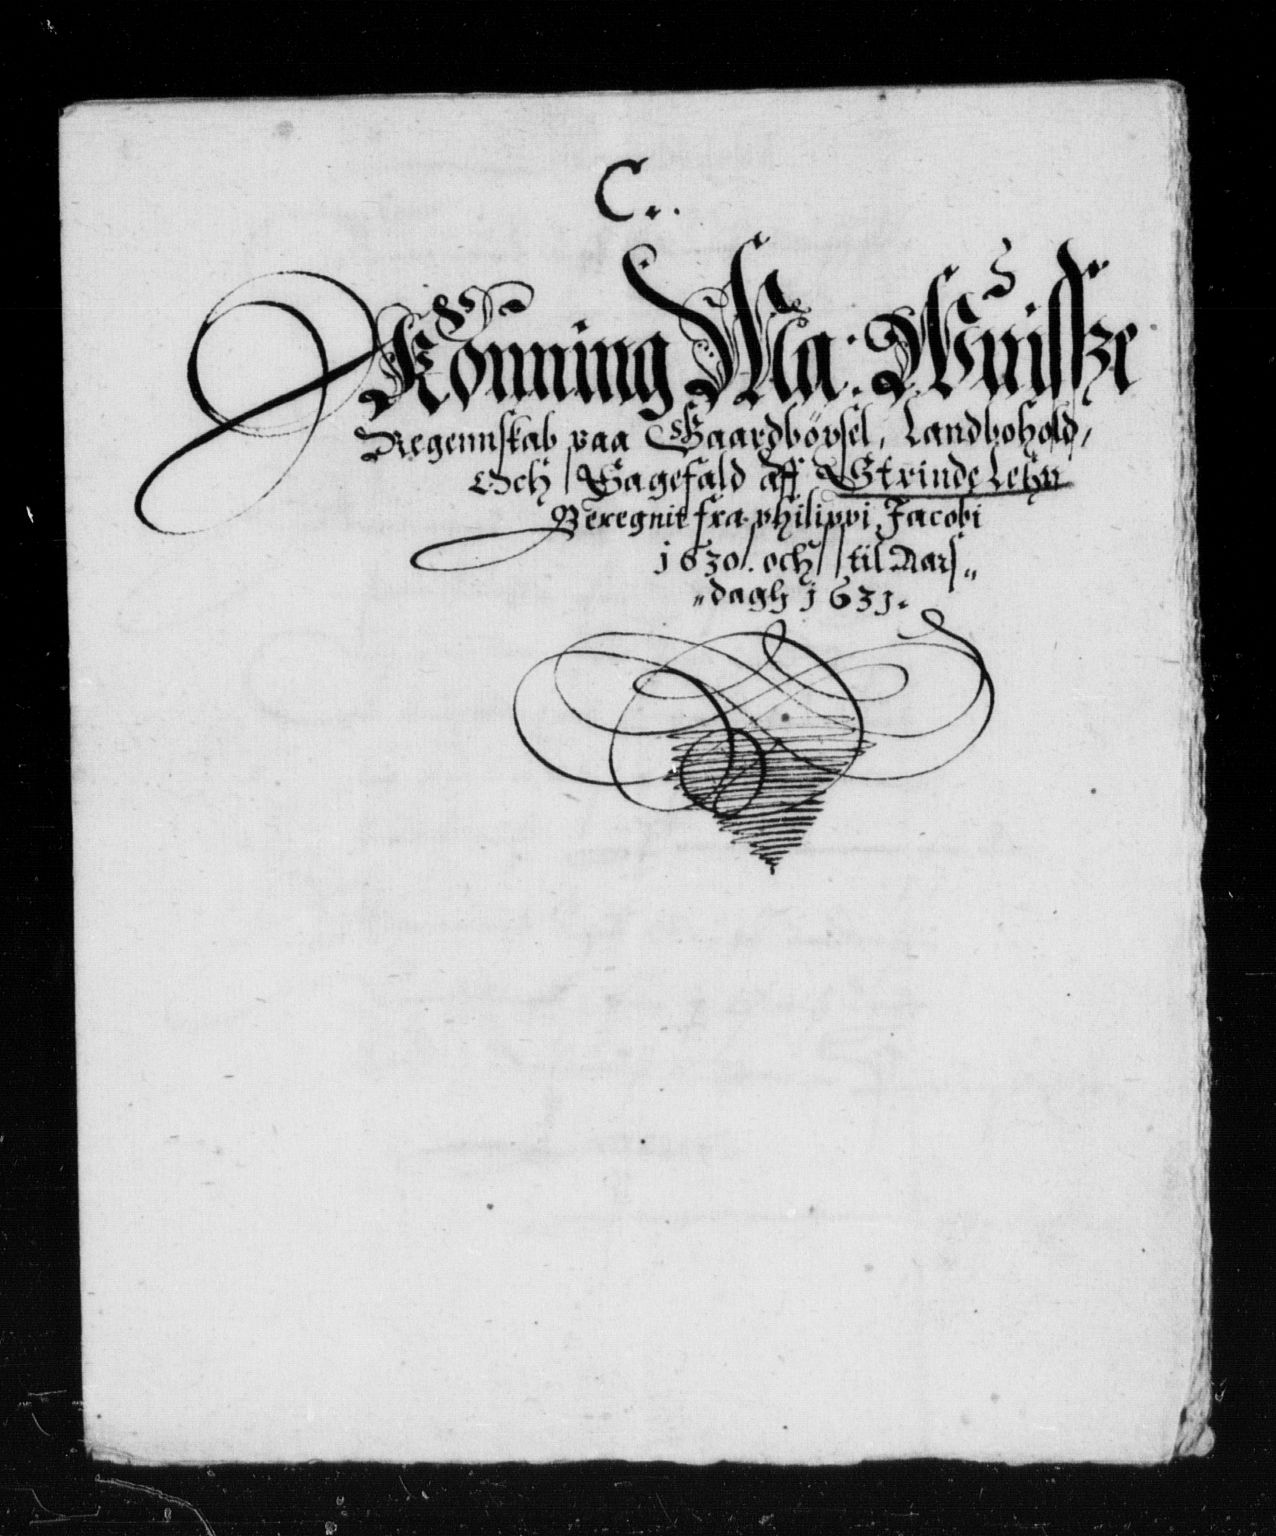 C..
Könning Ma: Wuissze
Regennskab paa Gaardböxsel, Landbohold,
Och Sagefald aff Strinde Lehn
Beregnit fra philippi Jacobi
1630. och til Aars„
„dagh 1631.